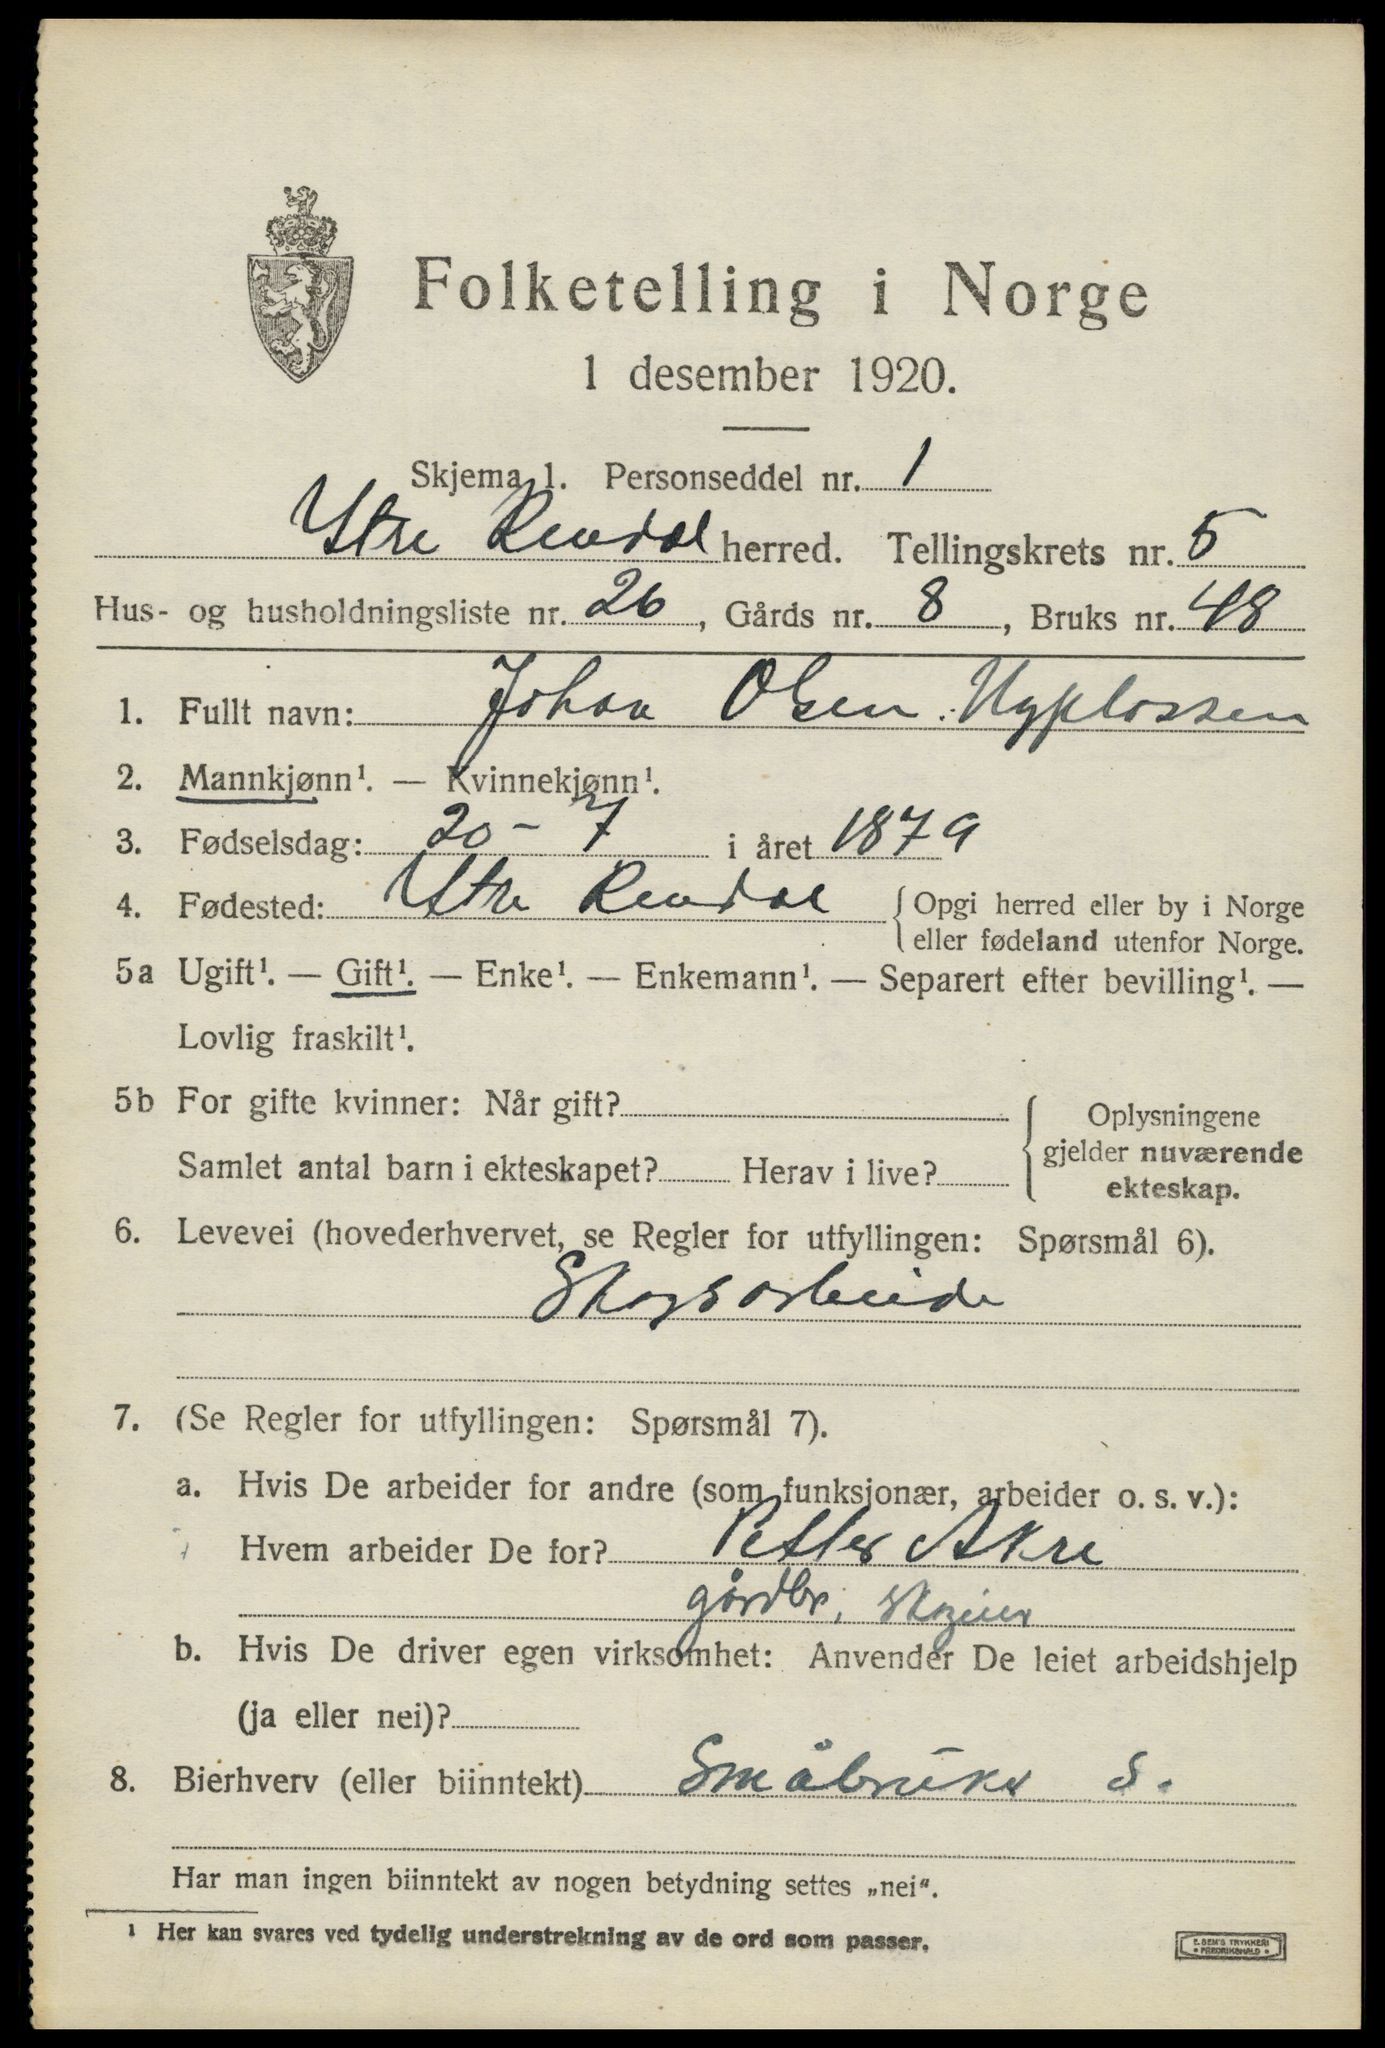 Folketelling i Norge
1 desember 1920.
Skjema 1. Personseddel nr. 1
Ytre Rendal herred. Tellingskrets nr. 5
Hus- og husholdningsliste nr. 26, Gårds nr. 8, Bruks nr. 48
1. Fullt navn: Johan Olsen Nyplassen
2. Mannkjønn¹. — Kvinnekjønn¹.
3. Fødselsdag: 20-7 i året 1879
4. Fødested: Ytre Rendal { Opgi herred eller by i Norge
eller fødeland utenfor Norge.
5a Ugift¹. — Gift¹. — Enke¹. — Enkemann¹. — Separert efter bevilling¹. —
Lovlig fraskilt¹.
5b For gifte kvinner: Når gift?
Samlet antal barn i ekteskapet? Herav i live?
{ Oplysningene
gjelder nuværende
ekteskap.
6. Levevei (hovederhvervet, se Regler for utfyllingen: Spørsmål 6).
Skogsarbeide
7. (Se Regler for utfyllingen: Spørsmål 7).
a. Hvis De arbeider for andre (som funksjonær, arbeider o. s. v.):
Hvem arbeider De for? Petter Akre
gårdbr, skogeier
b. Hvis De driver egen virksomhet: Anvender De leiet arbeidshjelp
(ja eller nei)?
8. Bierhverv (eller biinntekt) Småbruker S.
Har man ingen biinntekt av nogen betydning settes „nei“.
¹ Her kan svares ved tydelig understrekning av de ord som passer.
E. SEM'S TRYKKERI
• FREDRIKSHALD •